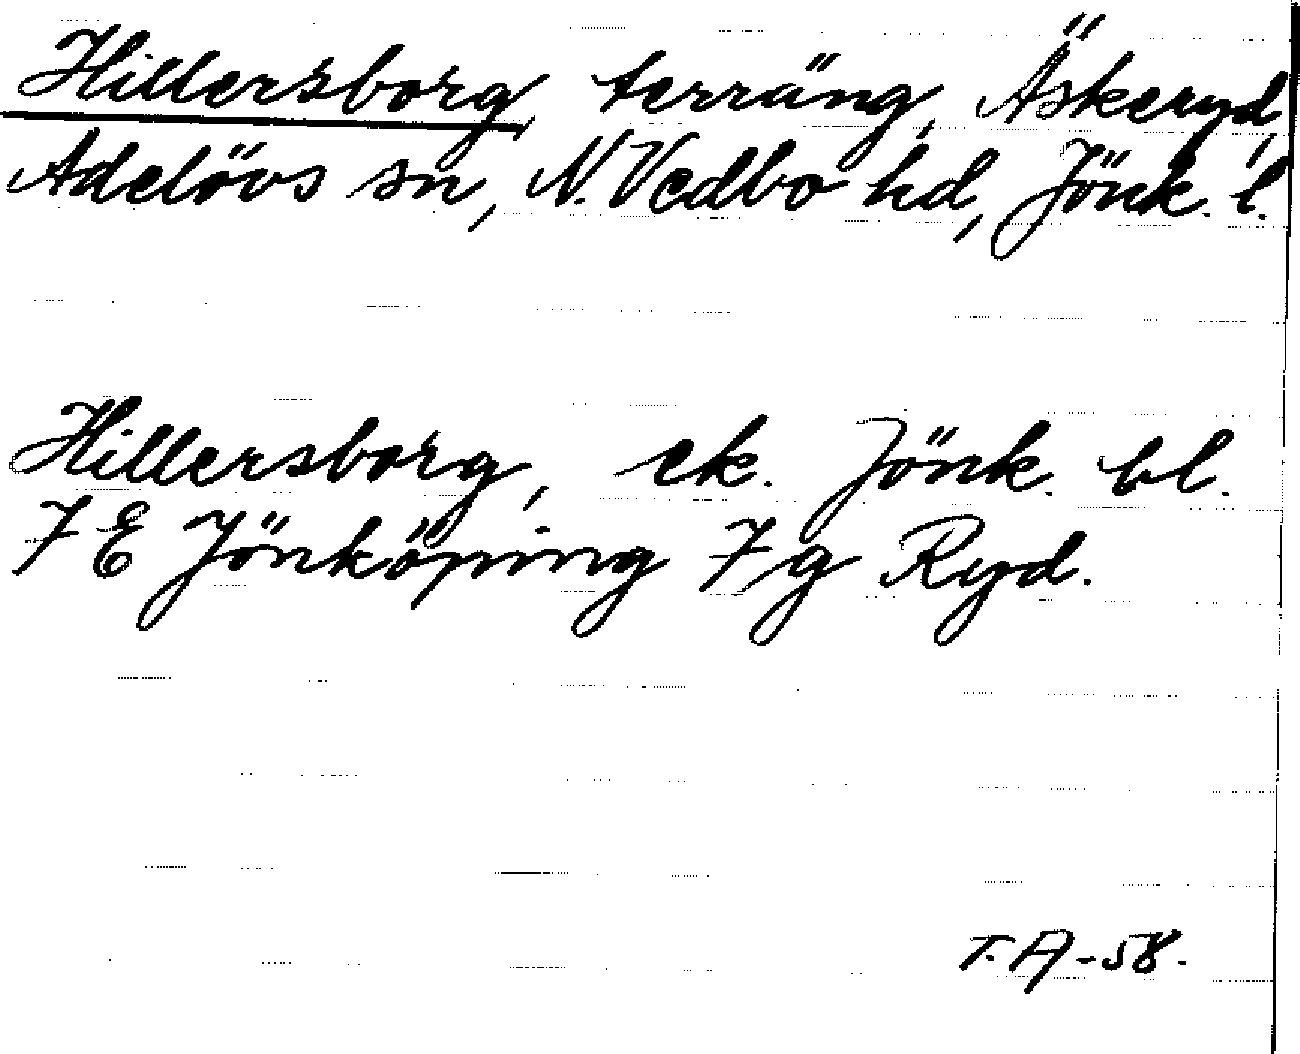 Hillersborg, terräng, Äskeryd,
Adelövs sn, N. Vedbo hd, Jönk. l.
Hillersborg, ek. Jönk. bl.
7 E Jönköping 7 g Ryd.
T. A -58.